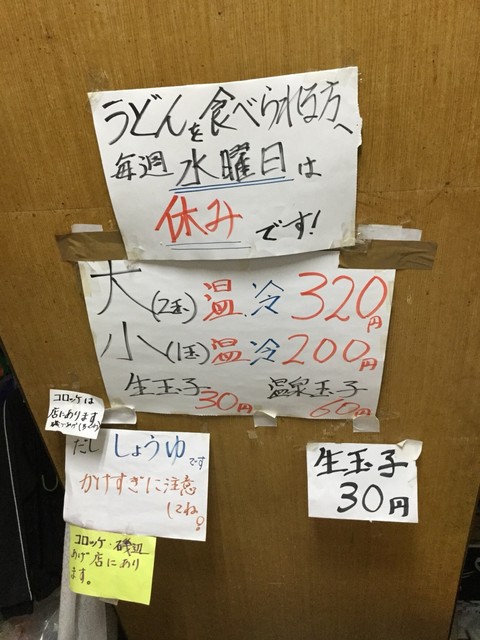 うどんを食べられる方へ
毎週 水曜日は
休みです!
大(2玉) 温 冷 320円
小(1玉) 温 冷 200円
生玉子 30円
温泉玉子 60円
コロッケは
店にあります
だし しょうゆです
かけすぎに注意
してね!
コロッケ・磯辺
あげ店にあり
ます。
生玉子
30円